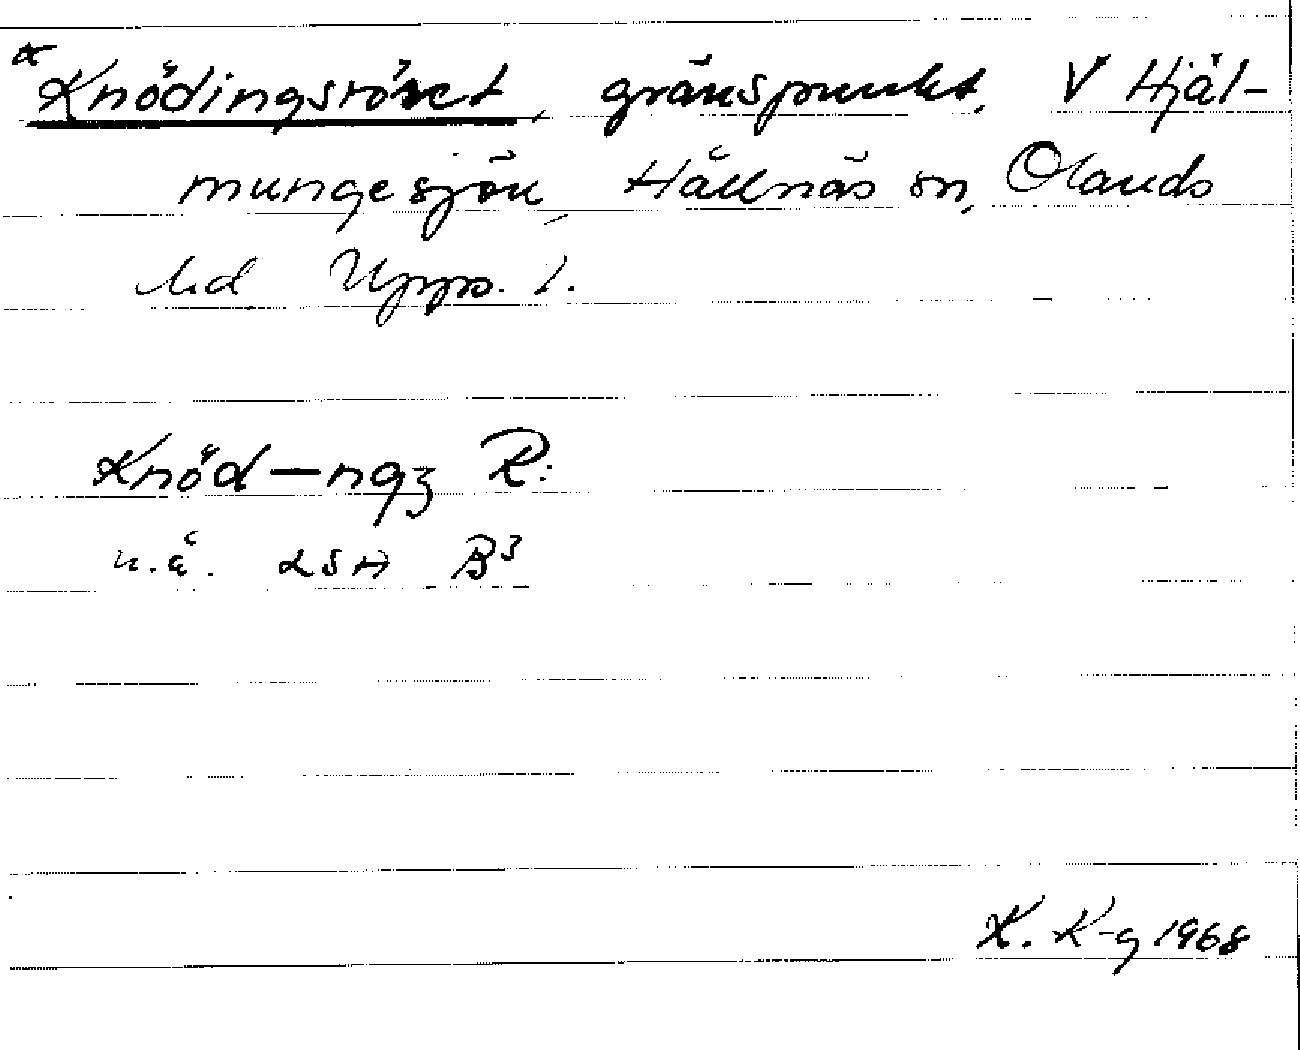 * Knödingsröset, gränspunkt, V Hjäl-
mungesjön, Hållnäs sn, Olands
hd Upps. l.
Knöd—ngz R:
u.å. LSA B3
K. K-g 1968